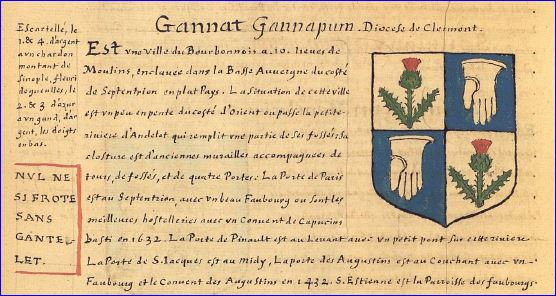 Gannat Gannapum. Diocese de Clermont.
Escartellé, le
1. & 4. d'argent
a vn chardon
montant de
sinople, fleuri
de gueulles, le
2. & 3 d'azur
a vn gand, d'ar
gent, les doigts
en bas.
NVL NE
SI FROTE
SANS
GANTE-
LET.
EST vne Ville du Bourbonnois a .10. lieues de
Moulins, enclauee dans la Basse Auuergne du costé
de Septentrion en plat Pays. La situation de cette ville
est vn peu en pente du costé d'Orient ou passe la petite
riuiere d'Andelot qui remplit vne partie de ses fossés. Sa
closture est d'anciennes murailles accompagnees de
tours, de fossés, et de quatre Portes: La Porte de Paris
est au Septentrion, auec vn beau Faubourg ou sont les
meilleures hostelleries auec vn Conuent de Capucins
basti en 1632. La Porte de Pinault est au Leuant auec vn petit pont sur cette riuiere
La Porte de S. Jacques est au midy, La porte des Augustins est au Couchant auec vn
Faubourg et le Conuent des Augustins en 1432. S. Estienne est la Parroisse des faubourgs